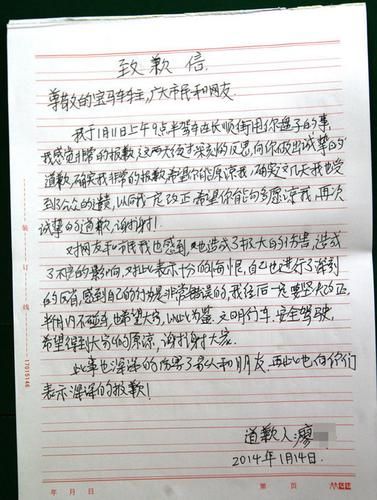 致歉信
尊敬的宝马车车主,广大市民和网友
我于1月11日上午9点半驾车在长顺街用你 的事,
我感到非常的抱歉,这两天我 深刻的反思,向你致出诚挚的
道歉,确实我非常的抱歉希望你能原谅我,确实这几天我也受
到了公众的谴责,以后我一定改正,希望你能 原谅我,再次
诚挚的道歉,谢谢!
对网友和市民我也感到 造成了 大的伤害,造成
了不良的影响,对此表示十分的悔恨,自己也进行了深刻
的反省,感到自己的行为是非常错误的,我往后一定要坚决改正,
也希望大家,以此为鉴,文明行车,安全驾驶,
希望得到大家的原谅,谢谢大家.
此事也深深的伤害了家人和朋友,再此也向你们
表示深深的抱歉!
道歉人:廖
2014年1月14日.
装订线
17015146
年 月 日
第 页